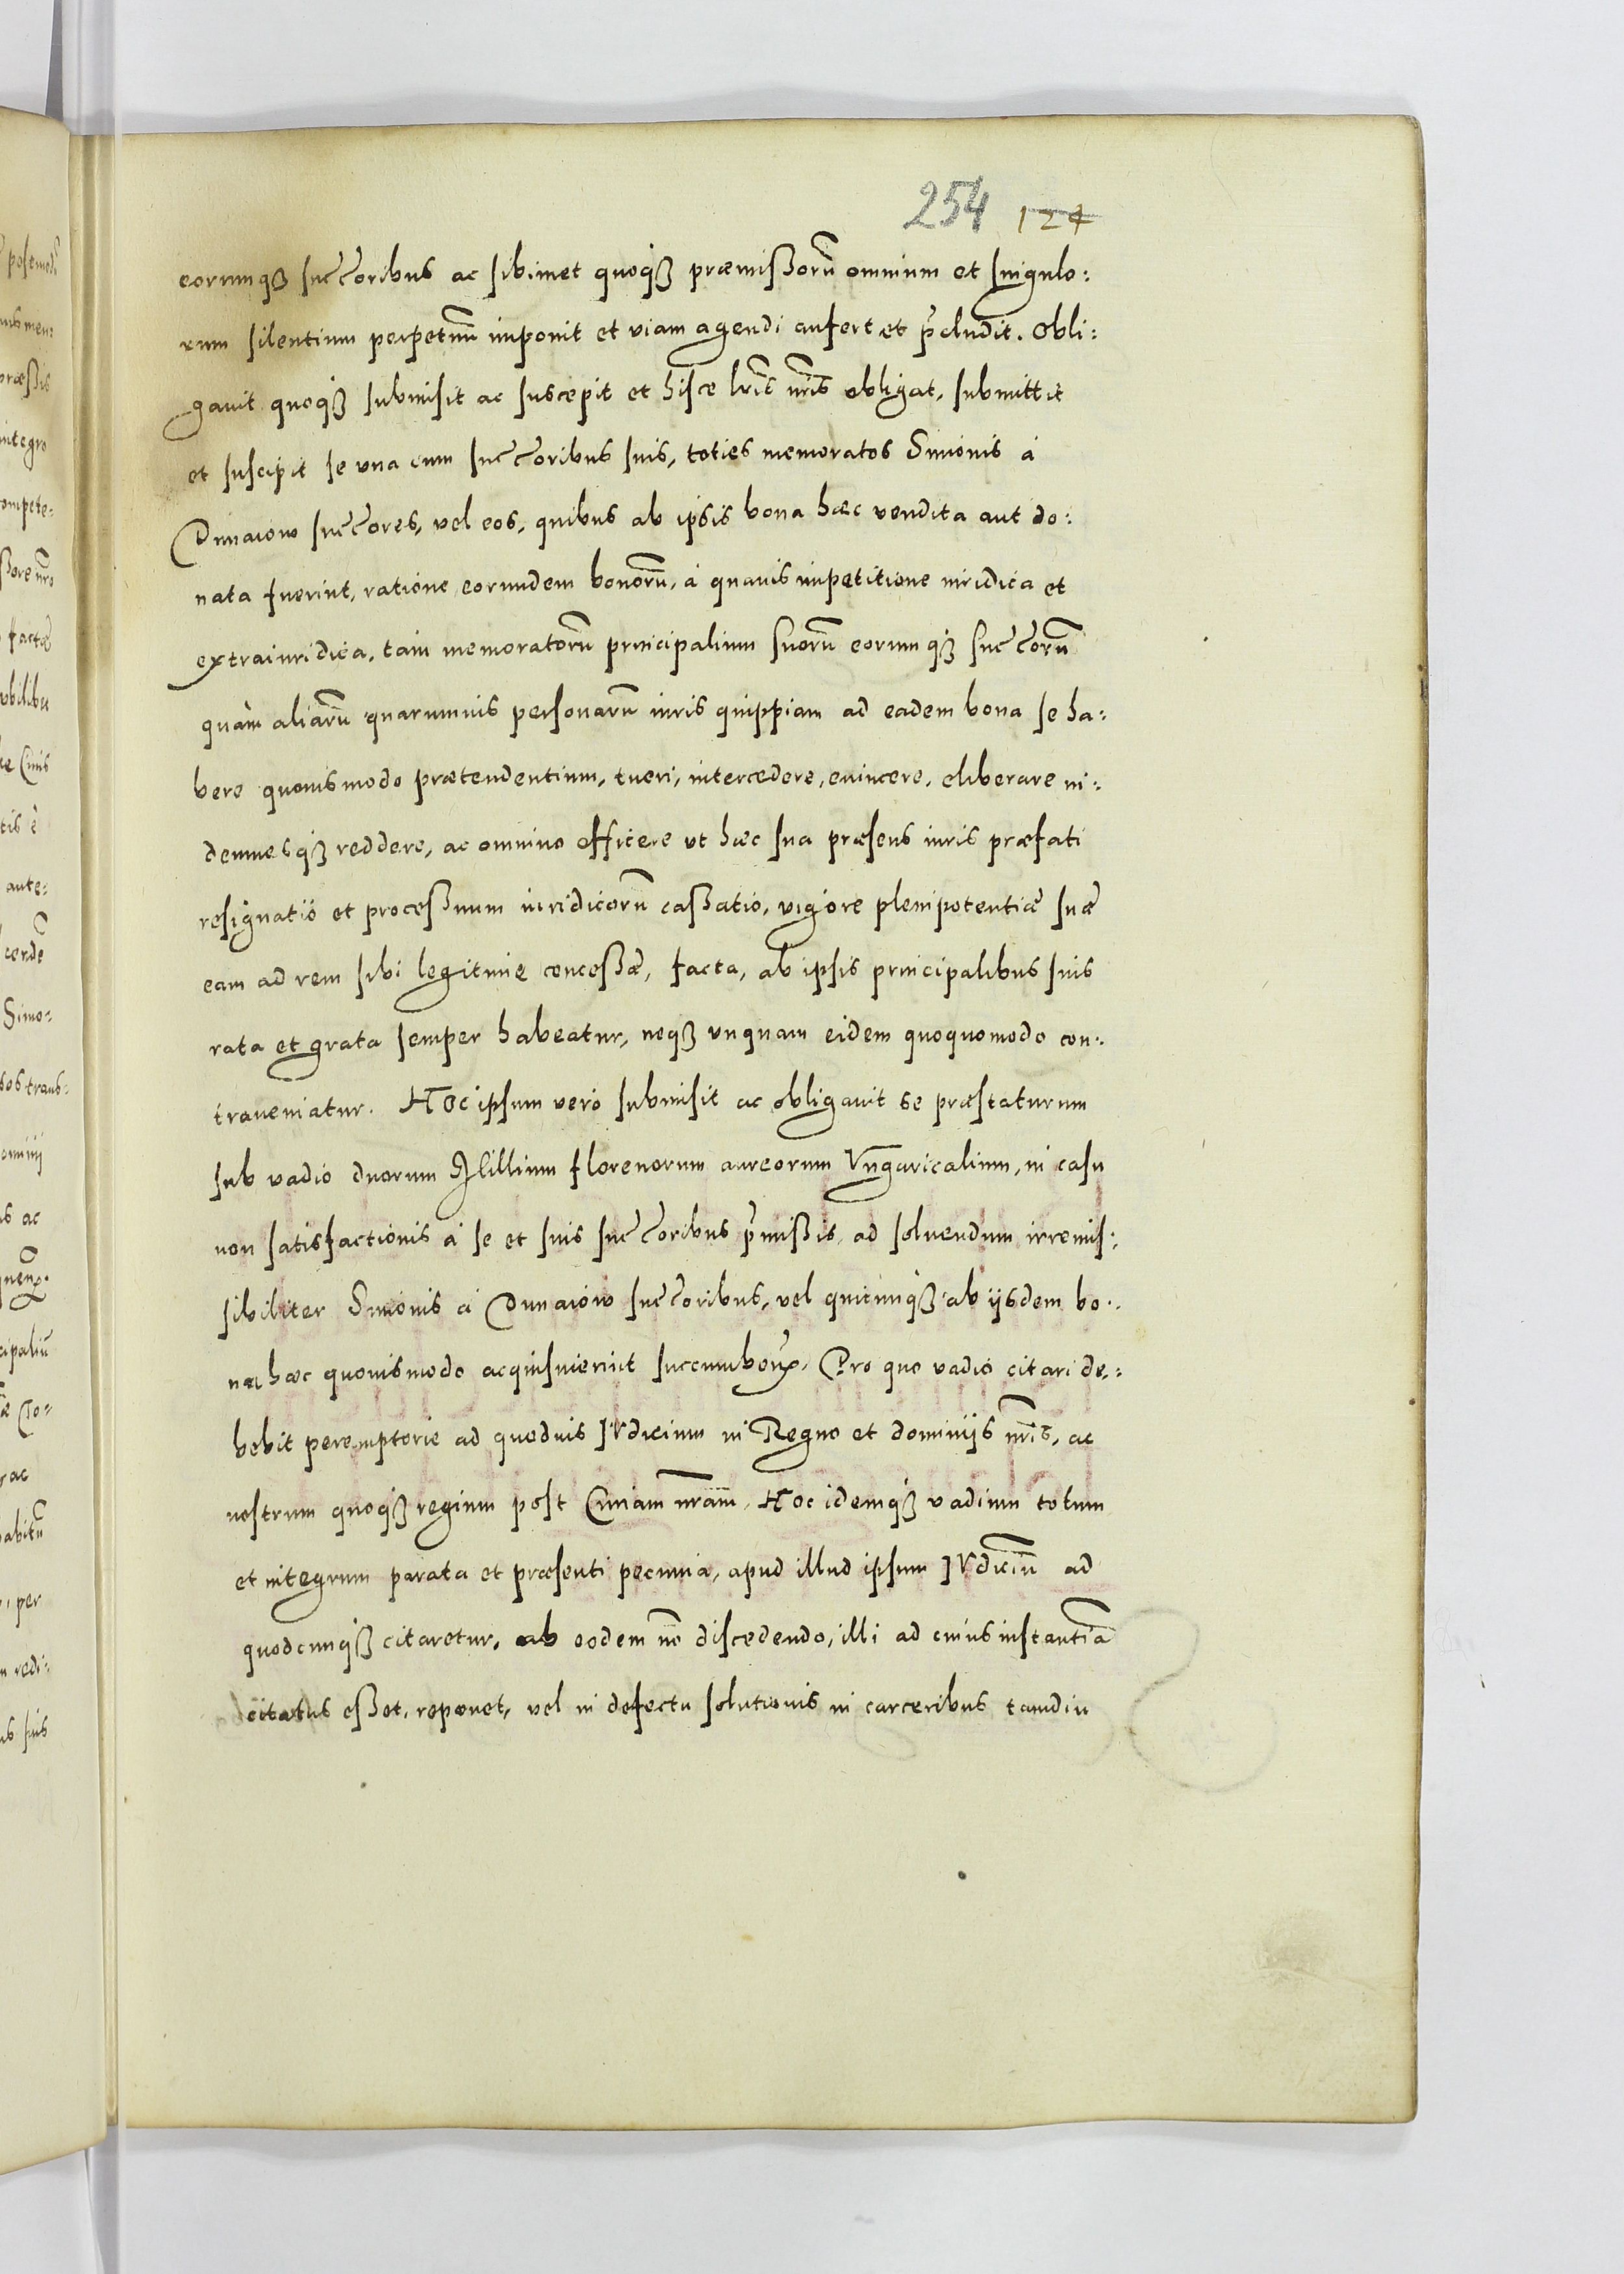 254 124
eorumq3 succ̄oribus ac sibimet quoq3 præmissorū omnium et singulo:
rum silentium perpetuū imponit et viam agendi aufert et p̄cludit. Obli:
gauit quoq3 submisit ac suscepit et hisce lr̄is nr̄is obligat, submittit
et suscipit se vna cum succ̄oribus suis, toties memoratos Simonis à
Dunaiow succ̄ores, vel eos, quibus ab ipsis bona hæc vendita aut do:
nata fuerint, ratione eorundem bonorū, à quauis impetitione iuridica et
extraiuridica, tam memoratorū principalium suorū eorumq3 succ̄orū
quàm aliarū quarumuis personarū iuris quippiam ad eadem bona se ha:
bere quouismodo prætendentium, tueri, intercedere, euincere, eliberare in:
demnesq3 reddere, ac omnino efficere vt hæc sua præsens iuris præfati
resignatio et processuum iuridicorū cassatio, vigore plenipotentiæ suæ
eam ad rem sibi legitimè concessæ, facta, ab ipsis principalibus suis
rata et grata semper habeatur, neq3 vnquam eidem quoquomodo con:
traueniatur. Hoc ipsum verò submisit ac obligauit se præstaturum
sub vadio duorum Millium florenorum aureorum Vngaricalium, in casu
non satisfactionis à se et suis succ̄oribus p̄missis, ad soluendum irremis:
sibiliter Simonis à Dunaiow succ̄oribus, vel quicunq3 ab ijsdem bo:
na hæc quouismodo acquisuerint succumbenꝝ. Pro quo vadio citari de:
bebit peremptorie ad quoduis IVdicium in Regno et dominijs nr̄is, ac
nostrum quoq3 regium post Curiam nr̄am. Hoc idemq3 vadium totum
et integrum parata et præsenti pecunia, apud illud ipsum IVdiciū ad
quodcunq3 citaretur, ab eodem nō discedendo, illi ad cuius instantiā
citatus esset, reponet, vel in defectu solutionis in carceribus tamdiu